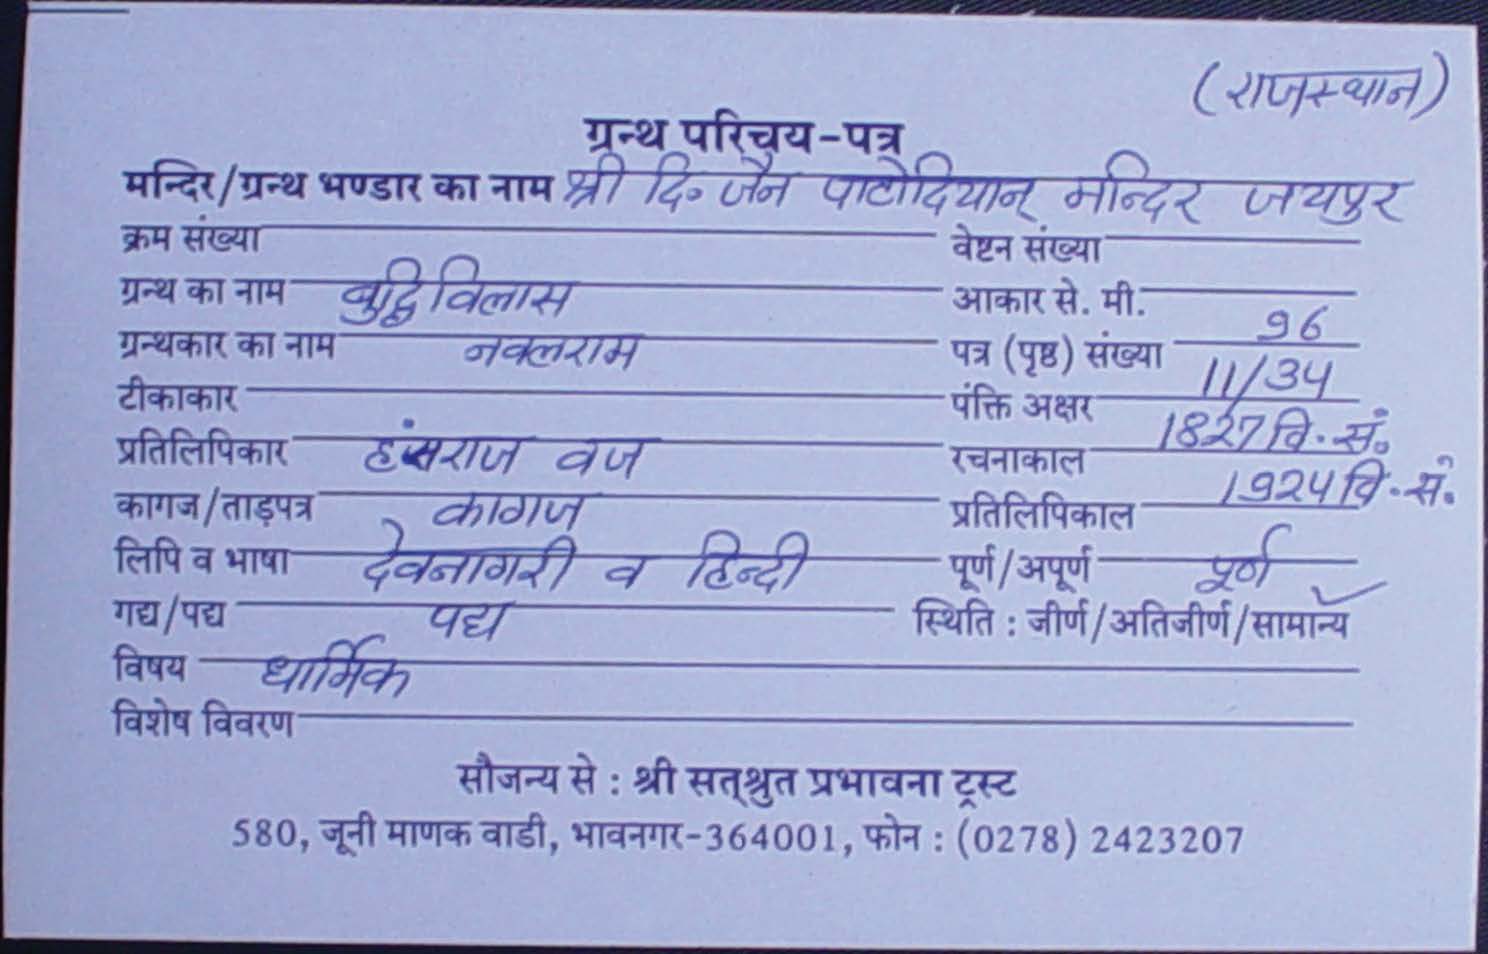 (राजस्थान)
ग्रन्थ परिचय-पत्र
मन्दिर/ग्रन्थ भण्डार का नाम श्री दि॰ जैन पाटोदियान् मन्दिर जयपुर
क्रम संख्या वेष्टन संख्या
ग्रन्थ का नाम बुद्धि विलास आकार से. मी.
ग्रन्थकार का नाम नवलराम पत्र (पृष्ठ) संख्या 96
टीकाकार पंक्ति अक्षर 11/34
प्रतिलिपिकार हंसराज वज रचनाकाल 1827 वि. सं॰
कागज/ताड़पत्र कागज प्रतिलिपिकाल 1924 वि. सं॰
लिपि व भाषा देवनागरी व हिन्दी पूर्ण/अपूर्ण पूर्ण
गद्य/पद्य पद्य स्थिति : जीर्ण/अतिजीर्ण/सामान्य ✓
विषय धार्मिक
विशेष विवरण
सौजन्य से : श्री सत्श्रुत प्रभावना ट्रस्ट
580, जूनी माणक वाडी, भावनगर-364001, फोन : (0278) 2423207